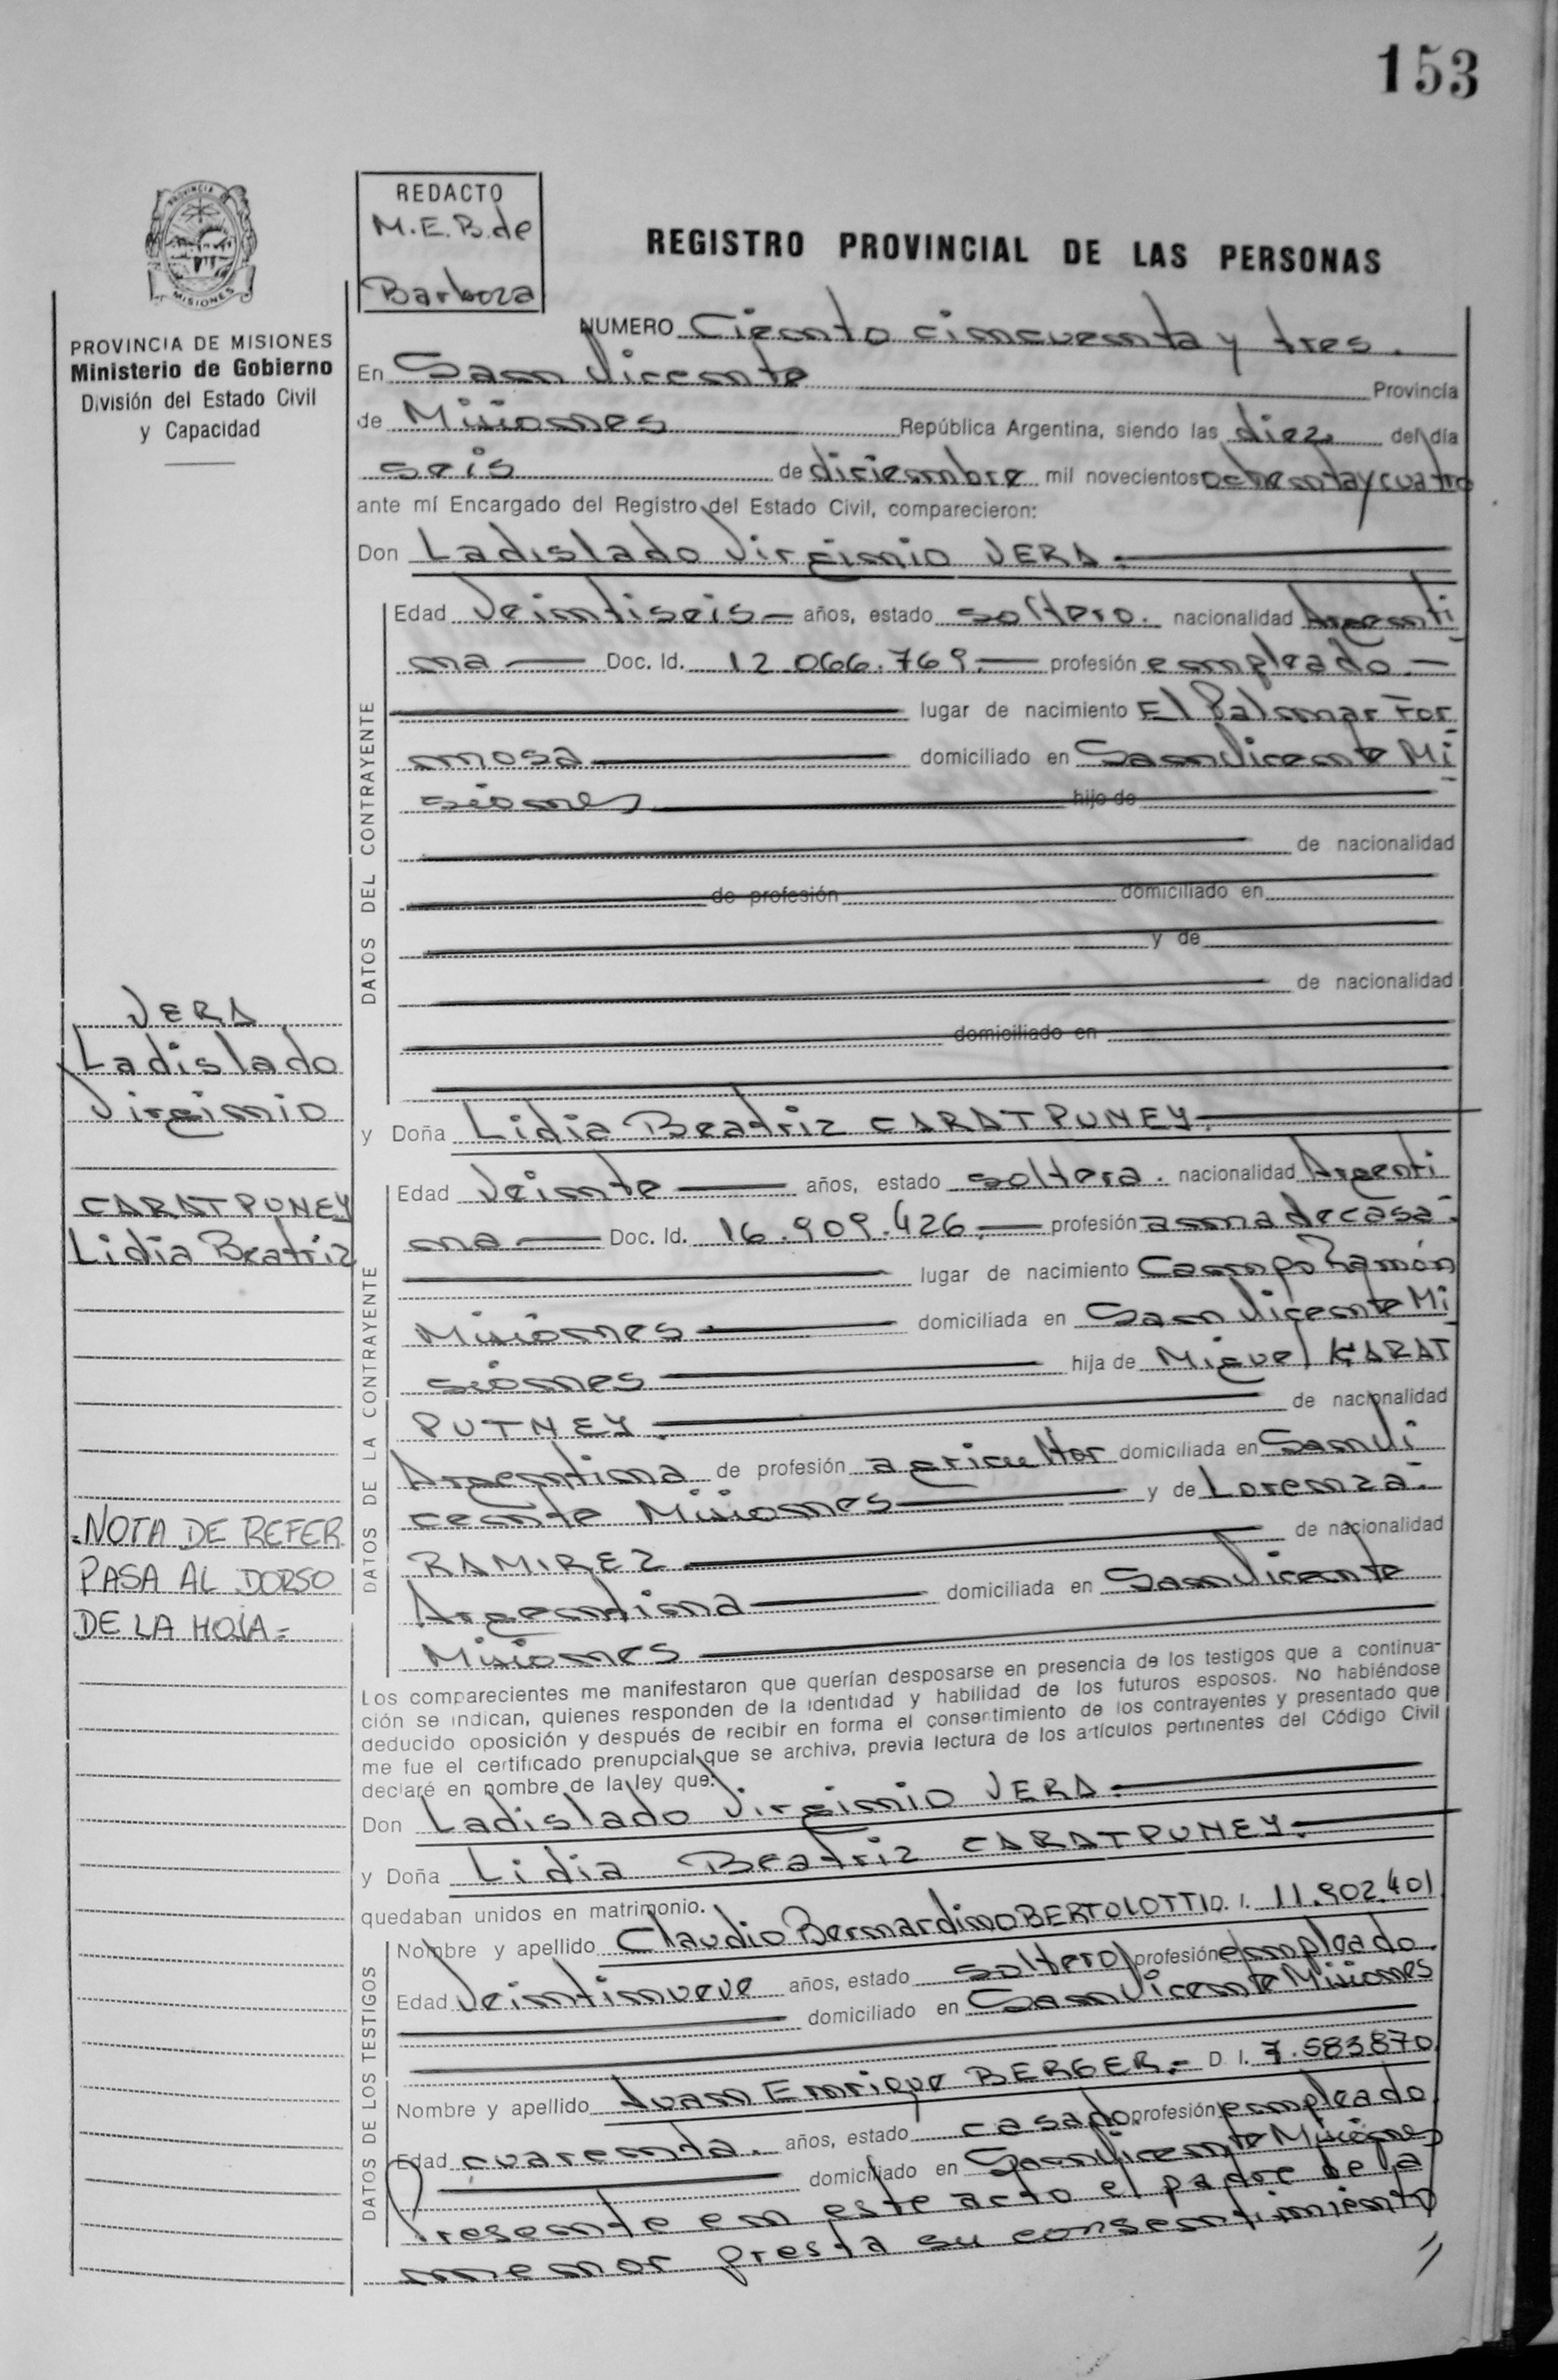 153
PROVINCIA
MISIONES
PROVINCIA DE MISIONES
Ministerio de Gobierno
División del Estado Civil
y Capacidad
REDACTO
M.E.B. de
Barboza
REGISTRO PROVINCIAL DE LAS PERSONAS
NUMERO Ciento cincuenta y tres.
En San Vicente Provincia
de Misiones República Argentina, siendo las diez del día
seis de diciembre mil novecientos ochenta y cuatro
ante mí Encargado del Registro del Estado Civil, comparecieron:
Don Ladislado Virginio VERA.
DATOS DEL CONTRAYENTE
Edad Veintiseis años, estado soltero. nacionalidad Argenti
na Doc. Id. 12.066.769. profesión empleado.
lugar de nacimiento El Palomar For
mosa domiciliado en San Vicente Mi
siones hijo de
de nacionalidad
de profesión domiciliado en
y de
de nacionalidad
domiciliado en
VERA
Ladislado
Virginio
CARATPUNEY
Lidia Beatriz
y Doña Lidia Beatriz CARATPUNEY.
DATOS DE LA CONTRAYENTE
Edad Veinte años, estado soltera. nacionalidad Argenti
na Doc. Id. 16.909.426. profesión ama de casa.
lugar de nacimiento Campo Ramón
Misiones domiciliada en San Vicente Mi
siones hija de Miguel KARAT
PUTNEY. de nacionalidad
Argentina de profesión agricultor domiciliada en San Vi
cente Misiones y de Lorenza
RAMIREZ de nacionalidad
Argentina domiciliada en San Vicente
Misiones
=NOTA DE REFER.
PASA AL DORSO
DE LA HOJA=
Los comparecientes me manifestaron que querían desposarse en presencia de los testigos que a continua-
ción se indican, quienes responden de la identidad y habilidad de los futuros esposos. No habiéndose
deducido oposición y después de recibir en forma el consentimiento de los contrayentes y presentado que
me fue el certificado prenupcial que se archiva, previa lectura de los artículos pertinentes del Código Civil
declaré en nombre de la ley que:
Don Ladislado Virginio VERA.
y Doña Lidia Beatriz CARATPUNEY.
quedaban unidos en matrimonio.
DATOS DE LOS TESTIGOS
Nombre y apellido Claudio Bernardino BERTOLOTTI D. I. 11.902.401
Edad Veintinueve años, estado soltero profesión empleado.
domiciliado en San Vicente Misiones
Nombre y apellido Juan Enrique BERGER.= D. I. 7.583870
Edad cuarenta. años, estado casado. profesión empleado.
domiciliado en San Vicente Misiones
Presente en este acto el padre de la
menor presta su consentimiento
//